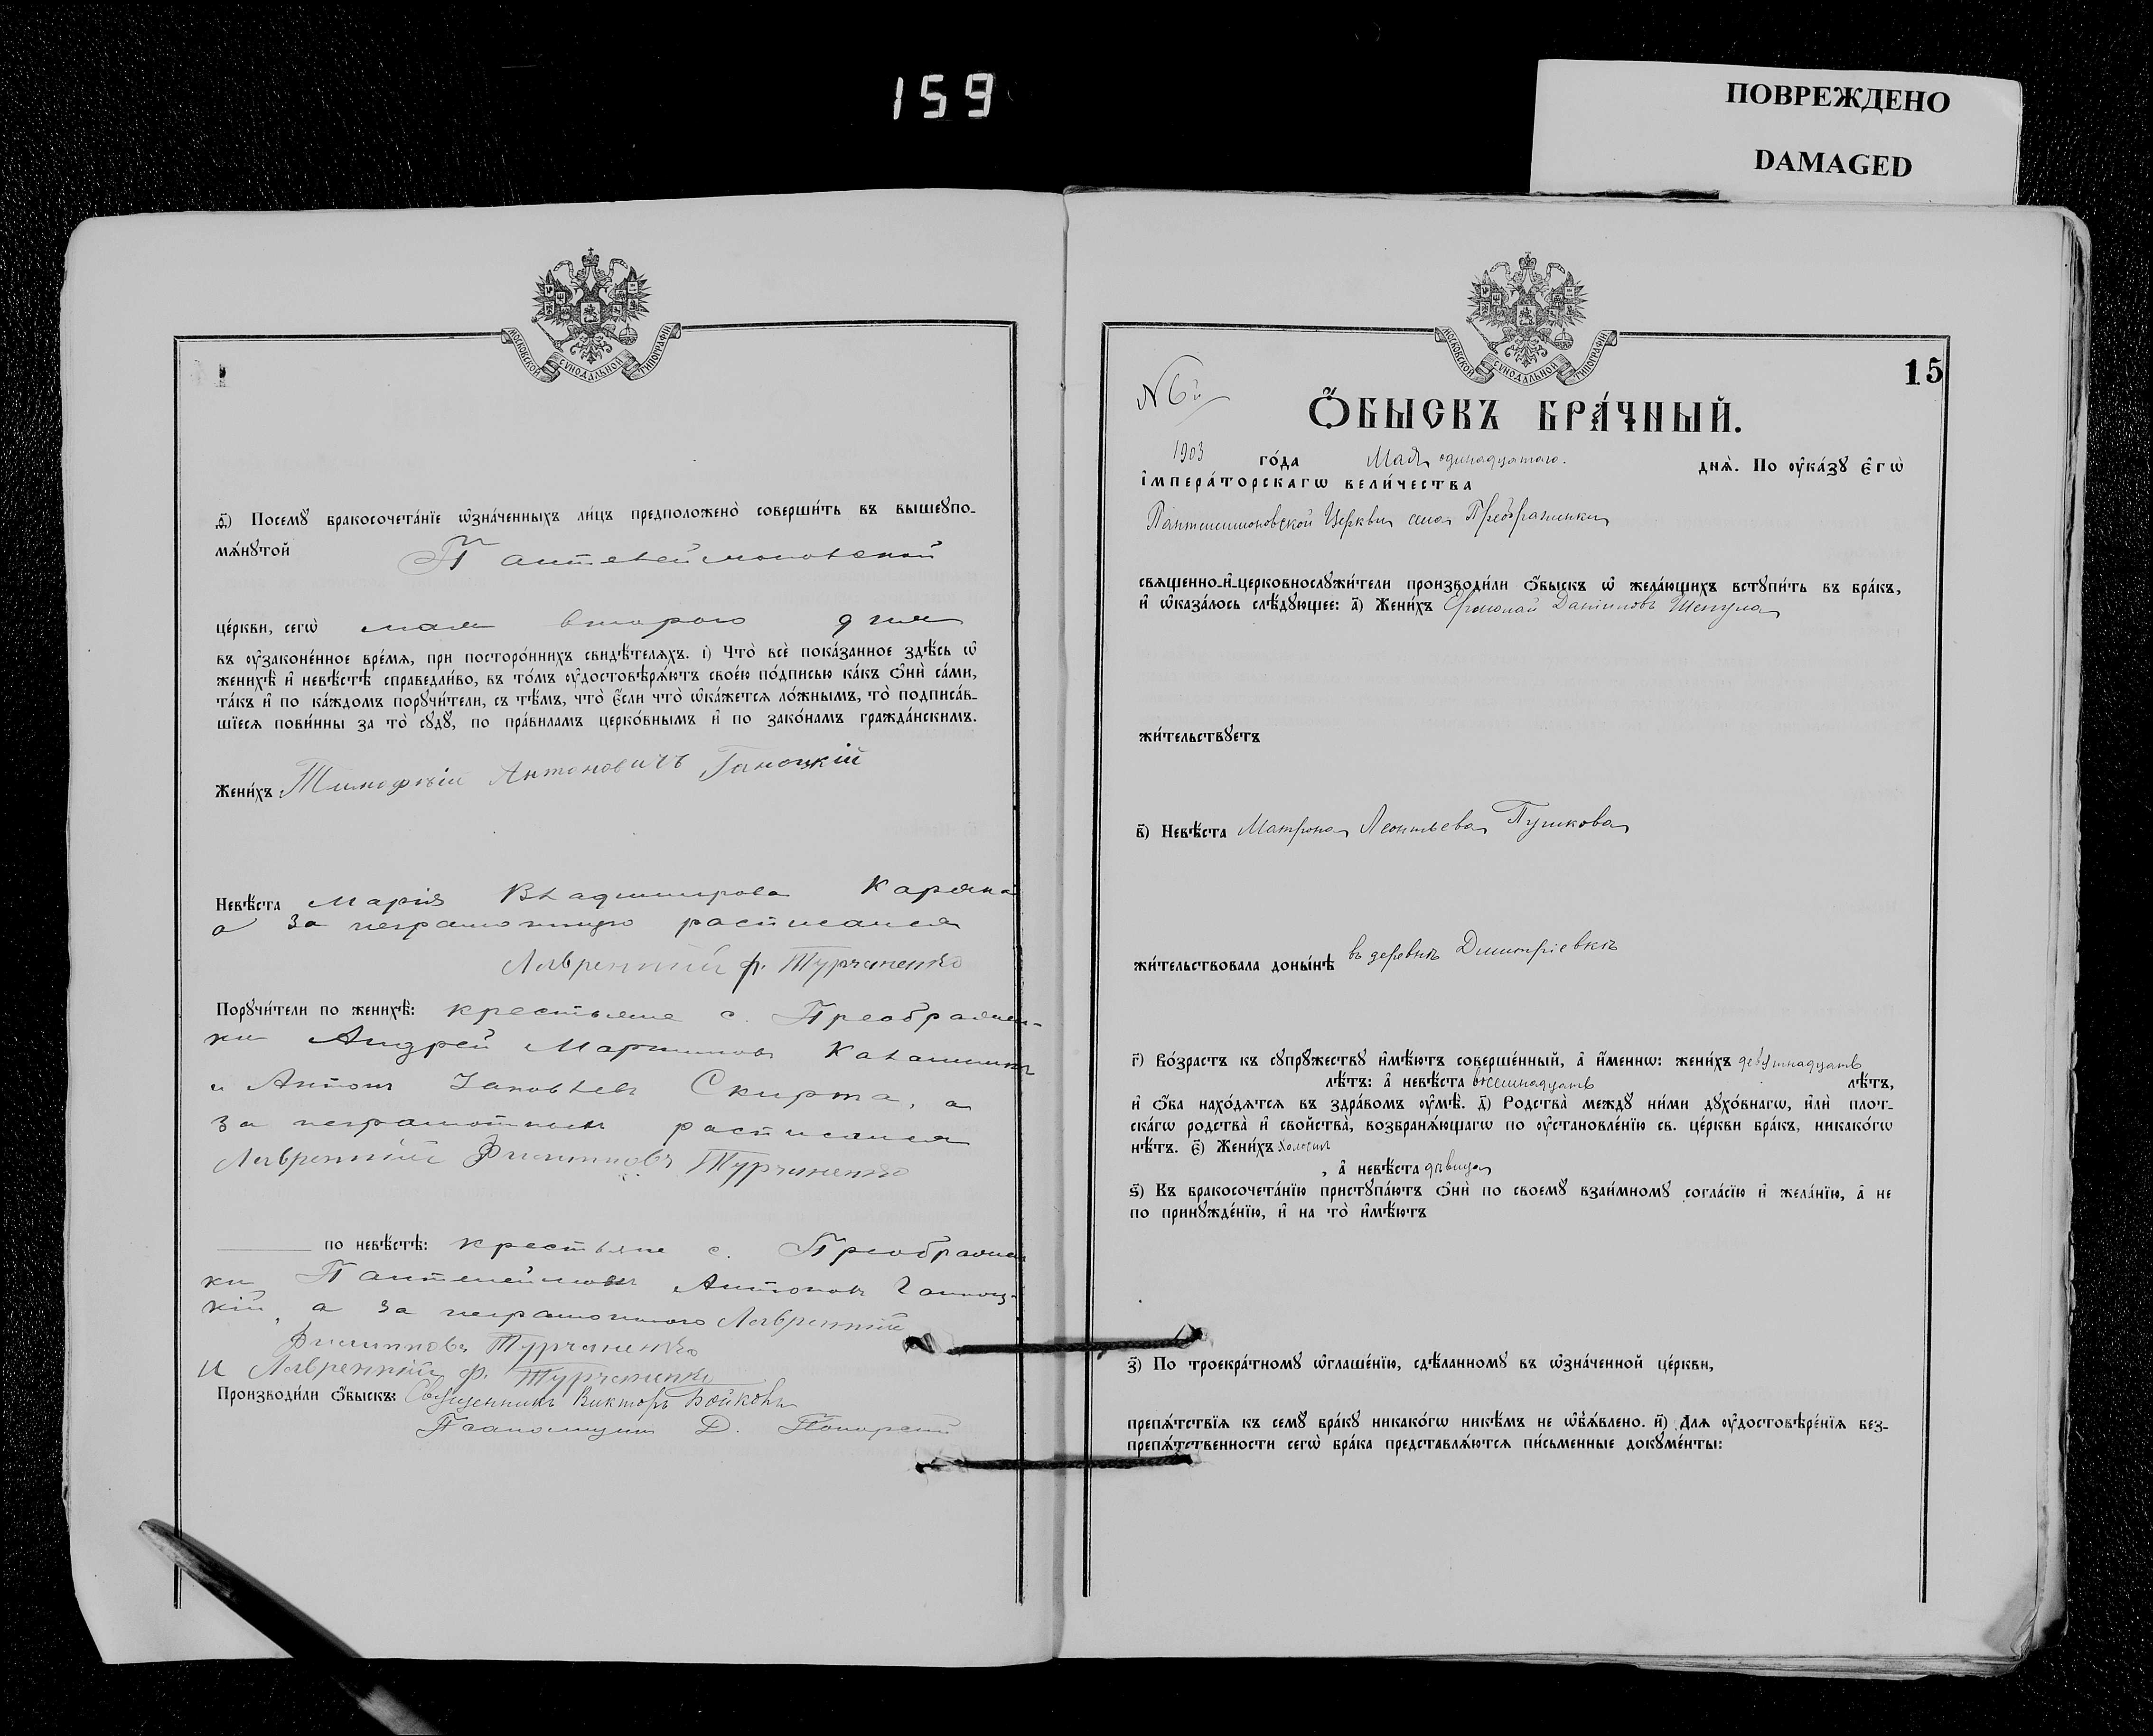 159
ПОВРЕЖДЕНО
DAMAGED
МОСКОВСКОЙ СѴНОДАЛЬНОЙ ТИПОГРАФІИ
ѳ҃) Посемꙋ бракосочета́нїе ѡ҆зна́ченныхъ ли́цъ предположено̀ соверши́ть въ вышеꙋпо-
мѧ́нꙋтой Пантелеймоновской
це́ркви, сегѡ̀ мая второго дня
въ ᲂу҆законе́нное вре́мѧ, при посторо́ннихъ свидѣ́телѧхъ. і҃) Что̀ всѐ пока́занное здѣ́сь ѡ҆
женихѣ̀ и҆ невѣ́стѣ справедли́во, въ то́мъ ᲂу҆достовѣрѧ́ютъ свое́ю по́дписью ка́къ ѻ҆нѝ са́ми,
та́къ и҆ по ка́ждомъ порꙋчи́тели, съ тѣ́мъ, что̀ є҆́сли что̀ ѡ҆ка́жется ло́жнымъ, то̀ подписа́в-
шїеся пови́нны за то̀ сꙋдꙋ̀, по пра́виламъ церко́внымъ и҆ по зако́намъ гражда́нскимъ.
Жени́хъ Тимофѣй Антоновичъ Ганоцкій
Невѣ́ста Марія Владимирова Каряка
а за неграмотную расписался
Лаврентій ф. Турчененко
Порꙋчи́тели по женихѣ̀: крестьяне с. Преображен-
ки Андрей Мартиновъ
и Антонъ Яковлевъ Скирта, а
за неграмотныхъ расписался
Лаврентій Филипповъ Турчиненко
по невѣ́стѣ: крестьяне с. Преображен
ки Пантелеймонъ Антоновъ Ганоц-
кій, а за неграмотного Лаврентій
Филипповъ Турчиненко
и Лаврентій ф. Турчененко
Производи́ли ѻ҆́быскъ: Священникъ Викторъ Бойковъ
Псаломщикъ Д.
МОСКОВСКОЙ СѴНОДАЛЬНОЙ ТИПОГРАФІИ
15
№ 6й
Ѻ҆́БЫСКЪ БРА́ЧНЫЙ.
1903 го́да Мая одинадцатаго. днѧ̀. По ᲂу҆ка́зꙋ є҆гѡ̀
і҆мпера́торскагѡ вели́чества
Пантелеимоновской Церкви села Преображенки
свѧщенно-и҆-церковнослꙋжи́тели производи́ли ѻ҆́быскъ ѡ҆ жела́ющихъ встꙋпи́ть въ бра́къ,
и҆ ѡ҆каза́лось слѣ́дꙋющее: а҃) Жени́хъ Ермолай Даніиловъ Шепула
жи́тельствꙋетъ
в҃) Невѣ́ста Матрона Леонтьева Пушкова
жи́тельствовала доны́нѣ въ деревнѣ Димитріевкѣ
г҃) Во́зрастъ къ сꙋпрꙋ́жествꙋ и҆мѣ́ютъ соверше́нный, а҆ и҆́меннѡ: жени́хъ девятнадцать
лѣ́тъ: а҆ невѣ́ста восемнадцать лѣ́тъ,
и҆ ѻ҆́ба нахо́дѧтся въ здра́вомъ ᲂу҆мѣ̀. д҃) Родства̀ междꙋ̀ ни́ми дꙋхо́внагѡ, и҆лѝ плот-
ска́гѡ родства̀ и҆ свойства̀, возбранѧ́ющагѡ по ᲂу҆становле́нїю св. це́ркви бра́къ, никако́гѡ
нѣ́тъ. є҃) Жени́хъ холостъ
, а҆ невѣ́ста дѣвица
ѕ҃) Къ бракосочета́нїю пристꙋпа́ютъ ѻ҆нѝ по своемꙋ̀ взаи́мномꙋ согла́сїю и҆ жела́нїю, а҆ не
по принꙋжде́нїю, и҆ на то̀ и҆мѣ́ютъ
з҃) По троекра́тномꙋ ѡ҆глаше́нїю, сдѣ́ланномꙋ въ ѡ҆зна́ченной це́ркви,
препѧ́тствїѧ къ семꙋ̀ бра́кꙋ никако́гѡ никѣ́мъ не ѡ҆б̾ѧ́влено. и҃) Длѧ ᲂу҆достовѣре́нїѧ без-
препѧ́тственности сегѡ̀ бра́ка представлѧ́ются пи́сьменные докꙋме́нты: